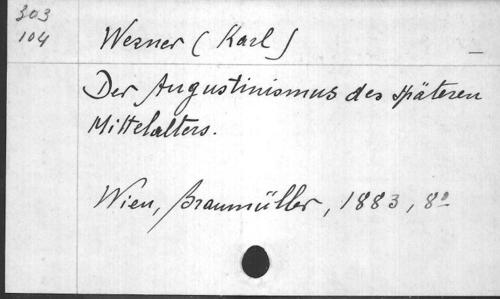 303
104
Werner (Karl)
Der Augustinismus des späteren
Mittelalters.
Wien, Braumüller, 1883, 8º